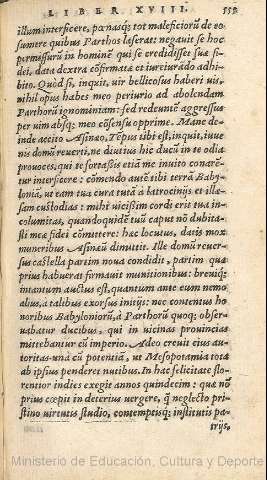 LIBER XVIII. 559
illum interficere, pœnasq; tot maleficiorũ de eo
sumere quibus Parthos læserat: negauit se hoc
permissurũ in hominẽ qui se credidisset suæ fi-
dei, data dextra cõfirmatæ et iureiurãdo adhi-
bito. Quòd si, inquit, uir bellicosus haberi uis,
nihil opus habes meo periurio ad abolendam
Parthorũ ignominiam: sed redeuntẽ aggressus
per uim absq; meo cõsensu opprime. Mane de-
inde accito Asinæo, Tẽpus tibi est, inquit, iuue
nis domũ reuerti, ne diutius hic ducũ in te odia
prouoces, qui te forsaßis etiã me inuito conarẽ-
tur interficere: cõmendo autẽ tibi terrã Baby-
loniã, ut eam tua cura tutã à latrocinijs et illæ-
sam custodias: mihi uicißim cordi erit tua in-
columitas, quandoquidẽ tuũ caput nõ dubita-
sti meæ fidei cõmittere: hæc locutus, datis mox
muneribus Asinæũ dimittit. Ille domũ reuer-
sus castella partim noua condidit, partim quæ
prius habuerat firmauit munitionibus: breuiq;
intantum auctus est, quantum ante eum nemo
alius, à talibus exorsus initijs: nec contentus ho
noribus Babyloniorũ, à Parthorũ quoq; obser-
uabatur ducibus, qui in uicinas prouincias
mittebantur cũ imperio. Adeo creuit eius au-
toritas unà cũ potentiã, ut Mesopotamia tota
ab ipsius penderet nutibus. In hac felicitate flo-
rentior indies exegit annos quindecim: quæ nõ
prius cœpit in deterius uergere, q̃ neglecto pri-
stino uirtutis studio, contemptisq; institutis pa-
trijs,
Ministerio de Educación, Cultura y Deporte